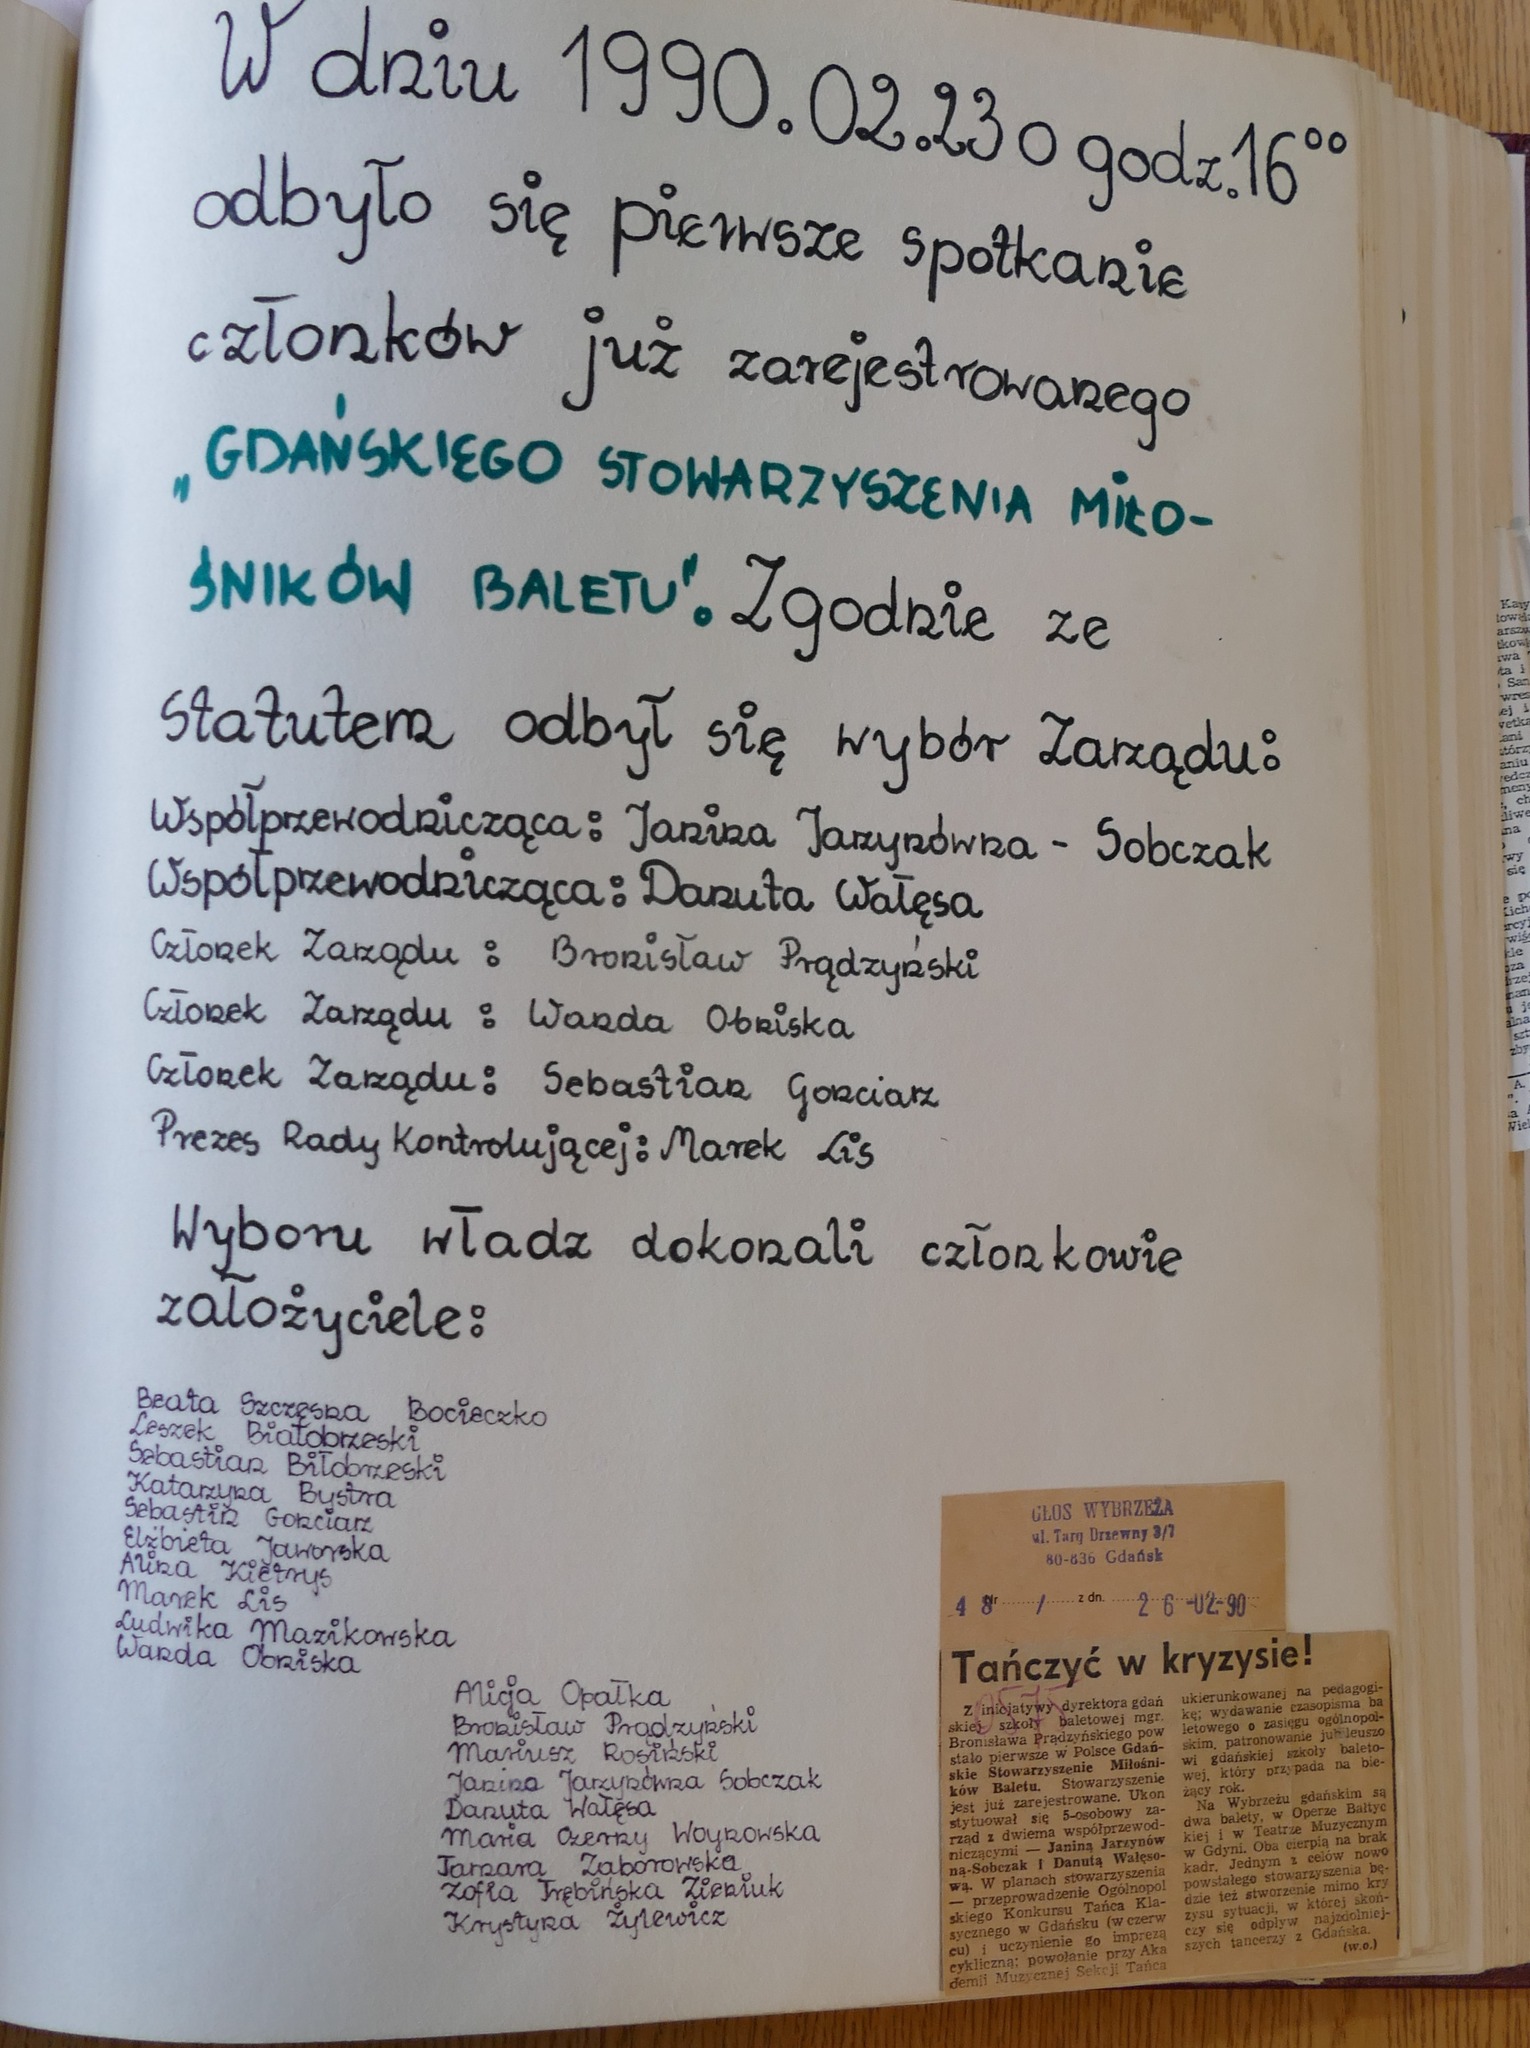 W dniu 1990.02.23 o godz. 16⁰⁰
odbyło się pierwsze spotkanie
członków już zarejestrowanego
„GDAŃSKIEGO STOWARZYSZENIA MIŁO-
ŚNIKÓW BALETU". Zgodnie ze
Statutem odbył się wybór Zarządu:
Współprzewodnicząca: Janina Jarzynówna - Sobczak
Współprzewodnicząca: Danuta Wałęsa
Członek Zarządu : Bronisław Prądzyński
Członek Zarządu : Wanda Obniska
Członek Zarządu : Sebastian Gonciarz
Prezes Rady Kontrolującej: Marek Lis
Wyboru władz dokonali członkowie
założyciele:
Beata Szczęsna Bocieczko
Leszek Białobrzeski
Sebastian Biłobrzeski
Katarzyna Bystra
Sebastin Gonciarz
Elżbieta Jaworska
Alina Kietrys
Marek Lis
Ludwika Mazikowska
Wanda Obniska
Alicja Opałka
Bronisław Prądzyński
Mariusz Rosiński
Janina Jarzynówna Sobczak
Danuta Wałęsa
Maria Czerny Woynowska
Tamara Zaborowska
Zofia Trębińska Zieniuk
Krystyna Żylewicz
GŁOS WYBRZEŻA
ul. Targ Drzewny 3/7
80-836 Gdańsk
Nr 48 / z dn. 26-02-90
Tańczyć w kryzysie!
Z inicjatywy dyrektora gdań
skiej szkoły baletowej mgr.
Bronisława Prądzyńskiego pow
stało pierwsze w Polsce Gdań-
skie Stowarzyszenie Miłośni-
ków Baletu. Stowarzyszenie
jest już zarejestrowane. Ukon
stytuował się 5-osobowy za-
rząd z dwiema współprzewod-
niczącymi — Janiną Jarzynów
ną-Sobczak i Danutą Wałęso-
wą. W planach stowarzyszenia
— przeprowadzenie Ogólnopol
skiego Konkursu Tańca Kla-
sycznego w Gdańsku (w czerw
cu) i uczynienie go imprezą
cykliczną; powołanie przy Aka
demii Muzycznej Sekcji Tańca
ukierunkowanej na pedagogi-
kę; wydawanie czasopisma ba
letowego o zasięgu ogólnopol-
skim, patronowanie jubileuszo
wi gdańskiej szkoły baleto-
wej, który przypada na bie-
żący rok.
Na Wybrzeżu gdańskim są
dwa balety, w Operze Bałtyc
kiej i w Teatrze Muzycznym
w Gdyni. Oba cierpią na brak
kadr. Jednym z celów nowo
powstałego stowarzyszenia bę-
dzie też stworzenie mimo kry
zysu sytuacji, w której skoń-
czy się odpływ najzdolniej-
szych tancerzy z Gdańska.
(w.o.)